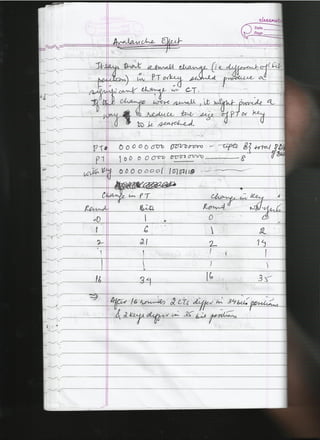 classmate
Date
Page
Avalanche Effect
It says that a small change (ie different of bit
position) in PT or key should produce a
significant change in CT.
If the change were small, it might provide a
way to reduce the size of PT or key
to be searched.
PT 0 00000000 00000000 —
PT 100 00000 00000000 —
with key 00000001
Change in PT Change in Key
Round Bits Round
0 1 0 0
1 6 1 2
2 21 2 14
16 34 16 35
⇒ After 16 rounds 2 CTs differ in 34 bit positions
& 2 keys differ in 35 bit positions